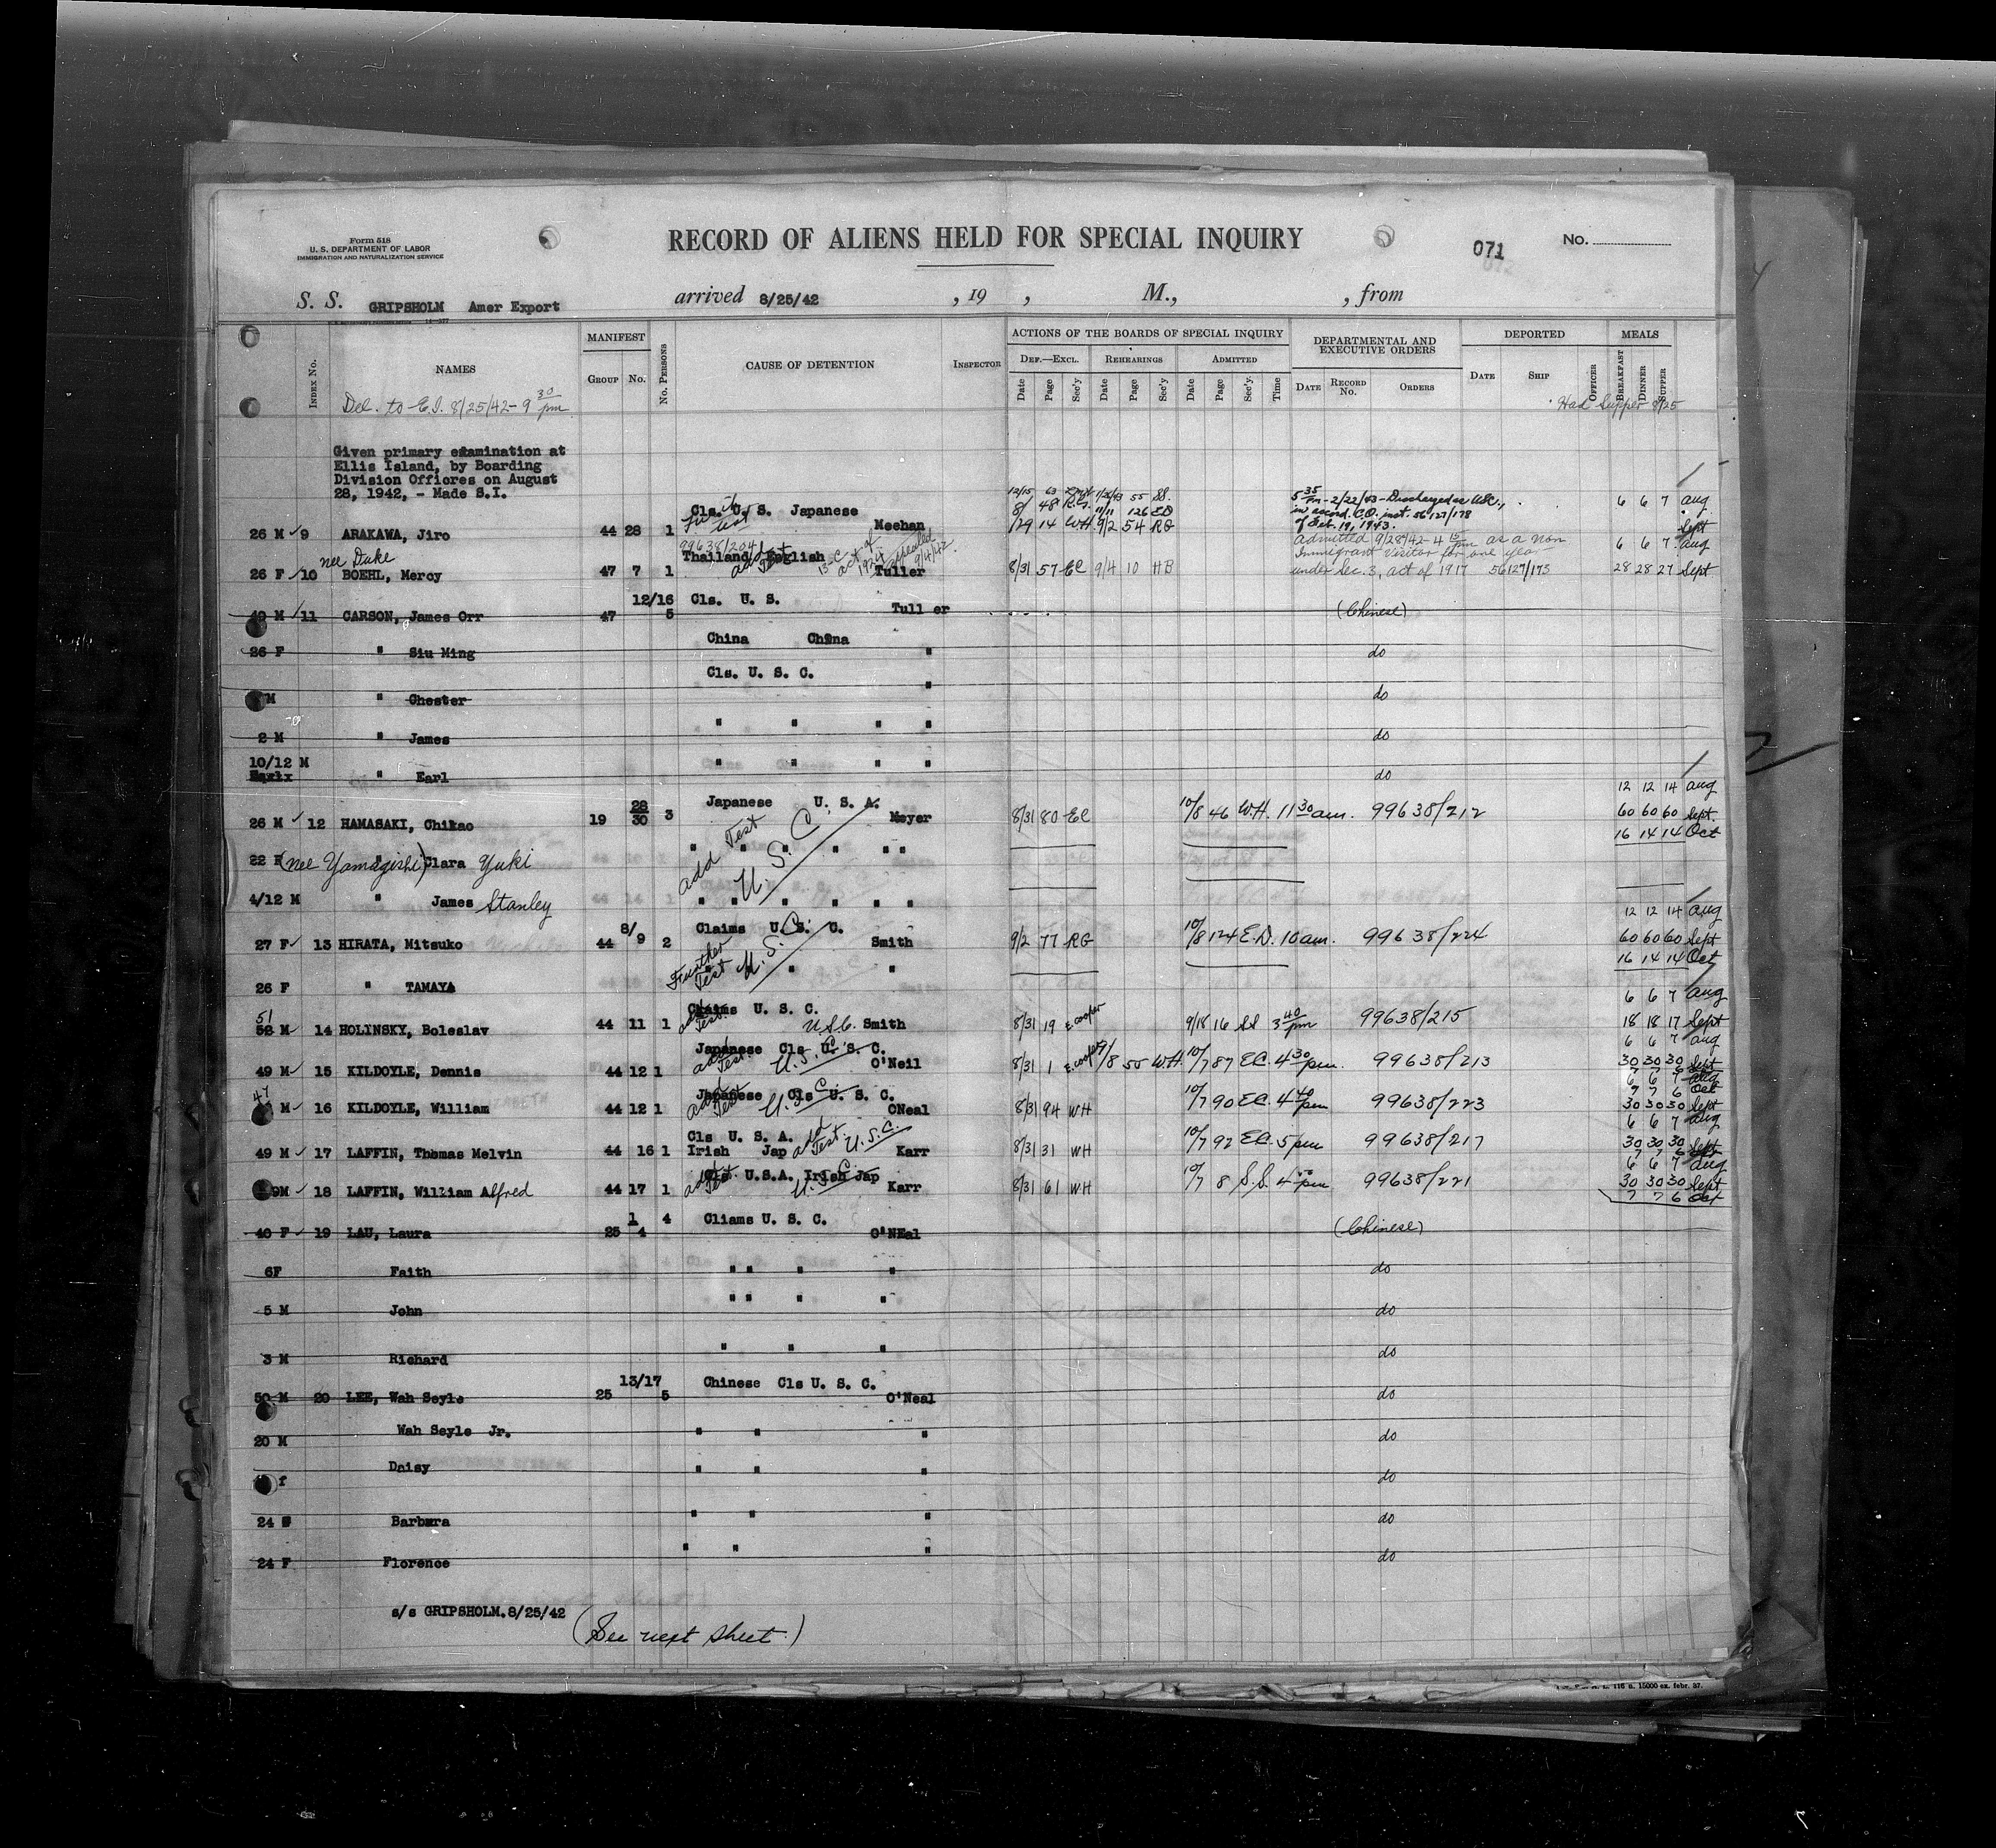 Form 518
U. S. DEPARTMENT OF LABOR
IMMIGRATION AND NATURALIZATION SERVICE
RECORD OF ALIENS HELD FOR SPECIAL INQUIRY
071
No.
S. S. GRIPSHOLM Amer Export arrived 8/25/42 , 19 , M., , from
INDEX No. NAMES MANIFEST GROUP No. No. PERSONS CAUSE OF DETENTION INSPECTOR
ACTIONS OF THE BOARDS OF SPECIAL INQUIRY DEF.—EXCL. Date Page Sec'y REHEARINGS Date Page Sec'y ADMITTED Date Page Sec'y. Time
DEPARTMENTAL AND EXECUTIVE ORDERS DATE RECORD No. ORDERS DEPORTED DATE SHIP OFFICER MEALS BREAKFAST DINNER SUPPER
Del. to E.I. 8/25/42 - 9 30 pm
Had Supper 8/25
Given primary examination at
Ellis Island, by Boarding
Division Offices on August
28, 1942, - Made S.I.
Cls. U. S. Japanese
5 35 Pm - 2/22/43 - Discharged as USC,
in accord. C.O. inst. 56127/178
of Feb. 19, 1943.
6 6 7 Aug
26 M 9 ARAKAWA, Jiro 44 28 1 Meehan 8/29 14 WH 9/2 54 RG Sept
99638/204
nee Duke Thailand English add Test 13-C act of 1924 appealed 9/4/42.
admitted 9/28/42 - 4 15 pm as a non
Immigrant Visitor for one year
under Sec. 3, act of 1917 56127/173
6 6 7 Aug
26 F 10 BOEHL, Mercy 47 7 1 Tuller 8/31 57 EC 9/4 10 HB 28 28 27 Sept
12/16 Cls. U. S.
49 M 11 CARSON, James Orr 47 5 Tuller (Chinese)
China China
26 F " Siu Ming " do
Cls. U. S. C.
M " Chester " do
" " " "
2 M " James do
10/12 M " " " "
" Earl do
12 12 14 Aug
28/30 Japanese U. S. A.
26 M 12 HAMASAKI, Chikao 19 3 Meyer 8/31 80 EC 10/8 46 W.H. 11 30 am. 99638/212 60 60 60 Sept.
16 14 14 Oct
add Test U. S. C.
22 F (nee Yamagishi) " Clara Yuki " " " " " "
4/12 M " James Stanley " " " " " "
12 12 14 Aug
8/9 Claims U. S. C.
27 F 13 HIRATA, Mitsuko 44 2 Smith 9/2 77 RG 10/8 124 E.D. 10 am. 99638/224 60 60 60 Sept
16 14 14 Oct
Further Test U. S. C.
26 F " TAMAYA " " "
6 6 7 Aug
Claims U. S. C.
51
58 M 14 HOLINSKY, Boleslav 44 11 1 add Test. U.S.C. Smith 8/31 19 E. Cooper 9/18 16 SS 3 40 pm 99638/215 18 18 17 Sept
6 6 7 Aug
Japanese Cls U. S. C.
49 M 15 KILDOYLE, Dennis 44 12 1 add Test. U.S.C. O'Neil 8/31 1 E. Cooper 9/8 55 W.H. 10/7 87 EC. 4 30 pm. 99638/213 30 30 30 Sept
6 6 7 Aug
Japanese Cls U. S. C.
47
M 16 KILDOYLE, William 44 12 1 add Test U.S.C. ONeal 8/31 94 WH 10/7 90 EC. 4 40 pm 99638/223 30 30 30 Sept
6 6 7 Aug
Cls U. S. A. add Test. U.S.C.
49 M 17 LAFFIN, Thomas Melvin 44 16 1 Irish Jap Karr 8/31 31 WH 10/7 92 EC. 5 pm 99638/217 30 30 30 Sept
6 6 7 Aug
add Test. Cls. U.S.A. Irish Jap U.S.C.
9M 18 LAFFIN, William Alfred 44 17 1 Karr 8/31 61 WH 10/7 8 S.S. 4 pm 99638/221 30 30 30 Sept
7 7 6 Oct
1 4 Cliams U. S. C.
40 F 19 LAU, Laura 25 4 O'NEal (Chinese)
6F Faith " " " " do
" " " "
5 M John do
" " "
3 M Richard do
13/17 Chinese Cls U. S. C.
50 M 20 LEE, Wah Seyle 25 5 O'Neal do
20 M Wah Seyle Jr. " " " do
f Daisy " " " do
24 Barbara " " " do
24 F Florence " " " do
s/s GRIPSHOLM.8/25/42
(See next sheet.)
116 a. 15000 ex. febr. 37.